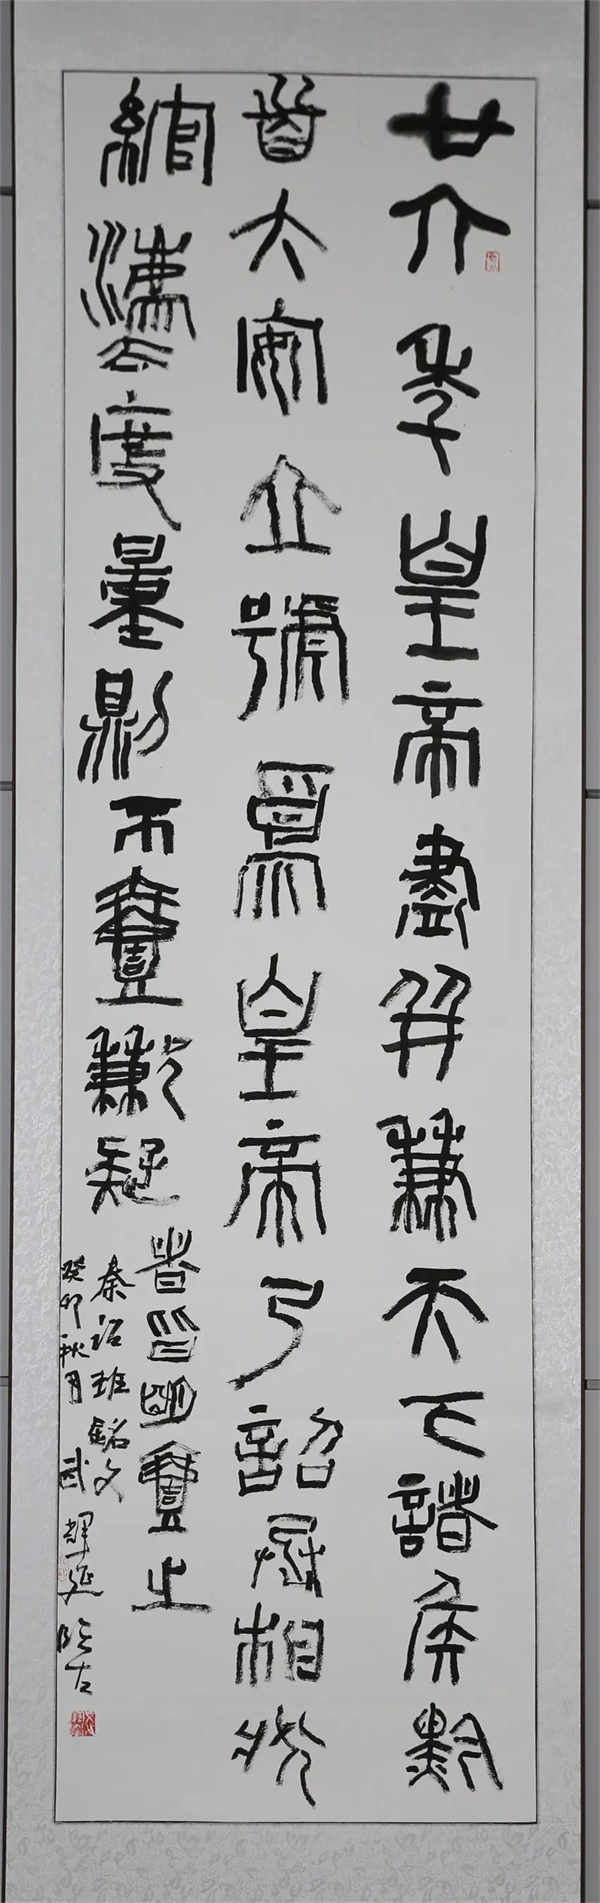 廿六年皇帝盡并兼天下諸侯黔
首大安立號為皇帝乃詔丞相狀
綰灋度量則不壹歉疑
者皆明壹之
秦詔班銘文
癸卯秋月 武輝延臨古